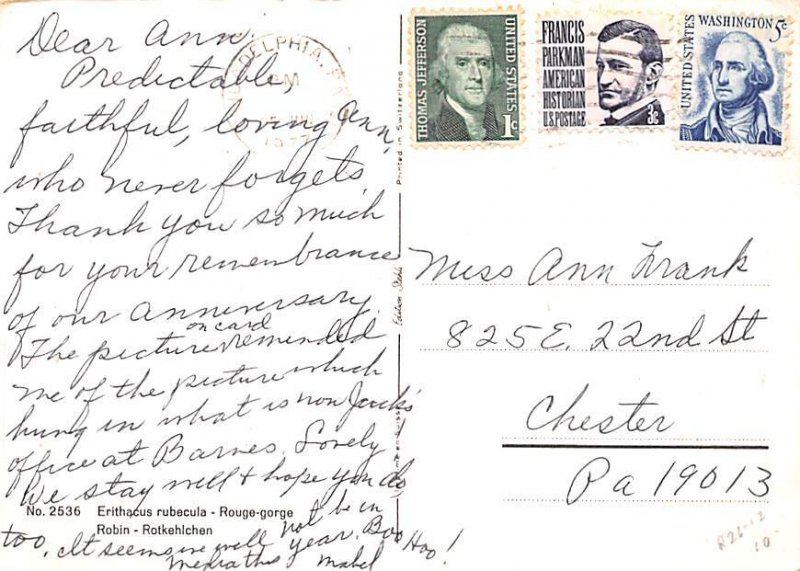 Dear Ann,
Predictable,
faithful, loving Ann,
who never forgets.
Thank you so much
for your remembrance
of our Anniversary.
The picture on card reminded
me of the picture which
hung in what is now Jack's
office at Barnes. Lovely
We stay well & hope you do
too. It seems we will not be in
Media this year. Boo Hoo!
Mabel
No. 2536 Erithacus rubecula - Rouge-gorge
Robin - Rotkehlchen
Printed in Switzerland
THOMAS JEFFERSON
UNITED STATES
1c
FRANCIS
PARKMAN
AMERICAN
HISTORIAN
U.S. POSTAGE
3c
WASHINGTON 5c
UNITED STATES
Miss Ann Frank
825 E. 22nd St
Chester
Pa 19013